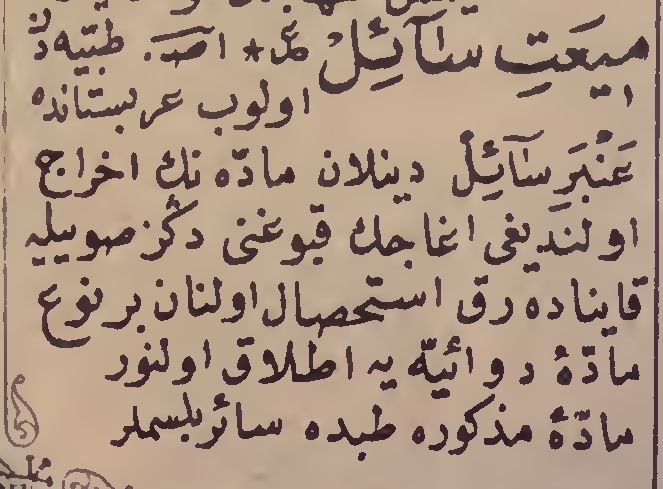 میعَتِ سَآئِلْ ع ★ اصـ. طبیّه دن
اولوب عربستانده
عَنْبَرِ سَآئِلْ دینلان مادّه نك اخراج
اولندیغی اغاجك قبوغنی دڭز صوییله
قاینادەرق استحصال اولنان بر نوع
مادّهٔ دوائیّه یه اطلاق اولنور
مادّهٔ مذكوره طبده سائر بلسملر